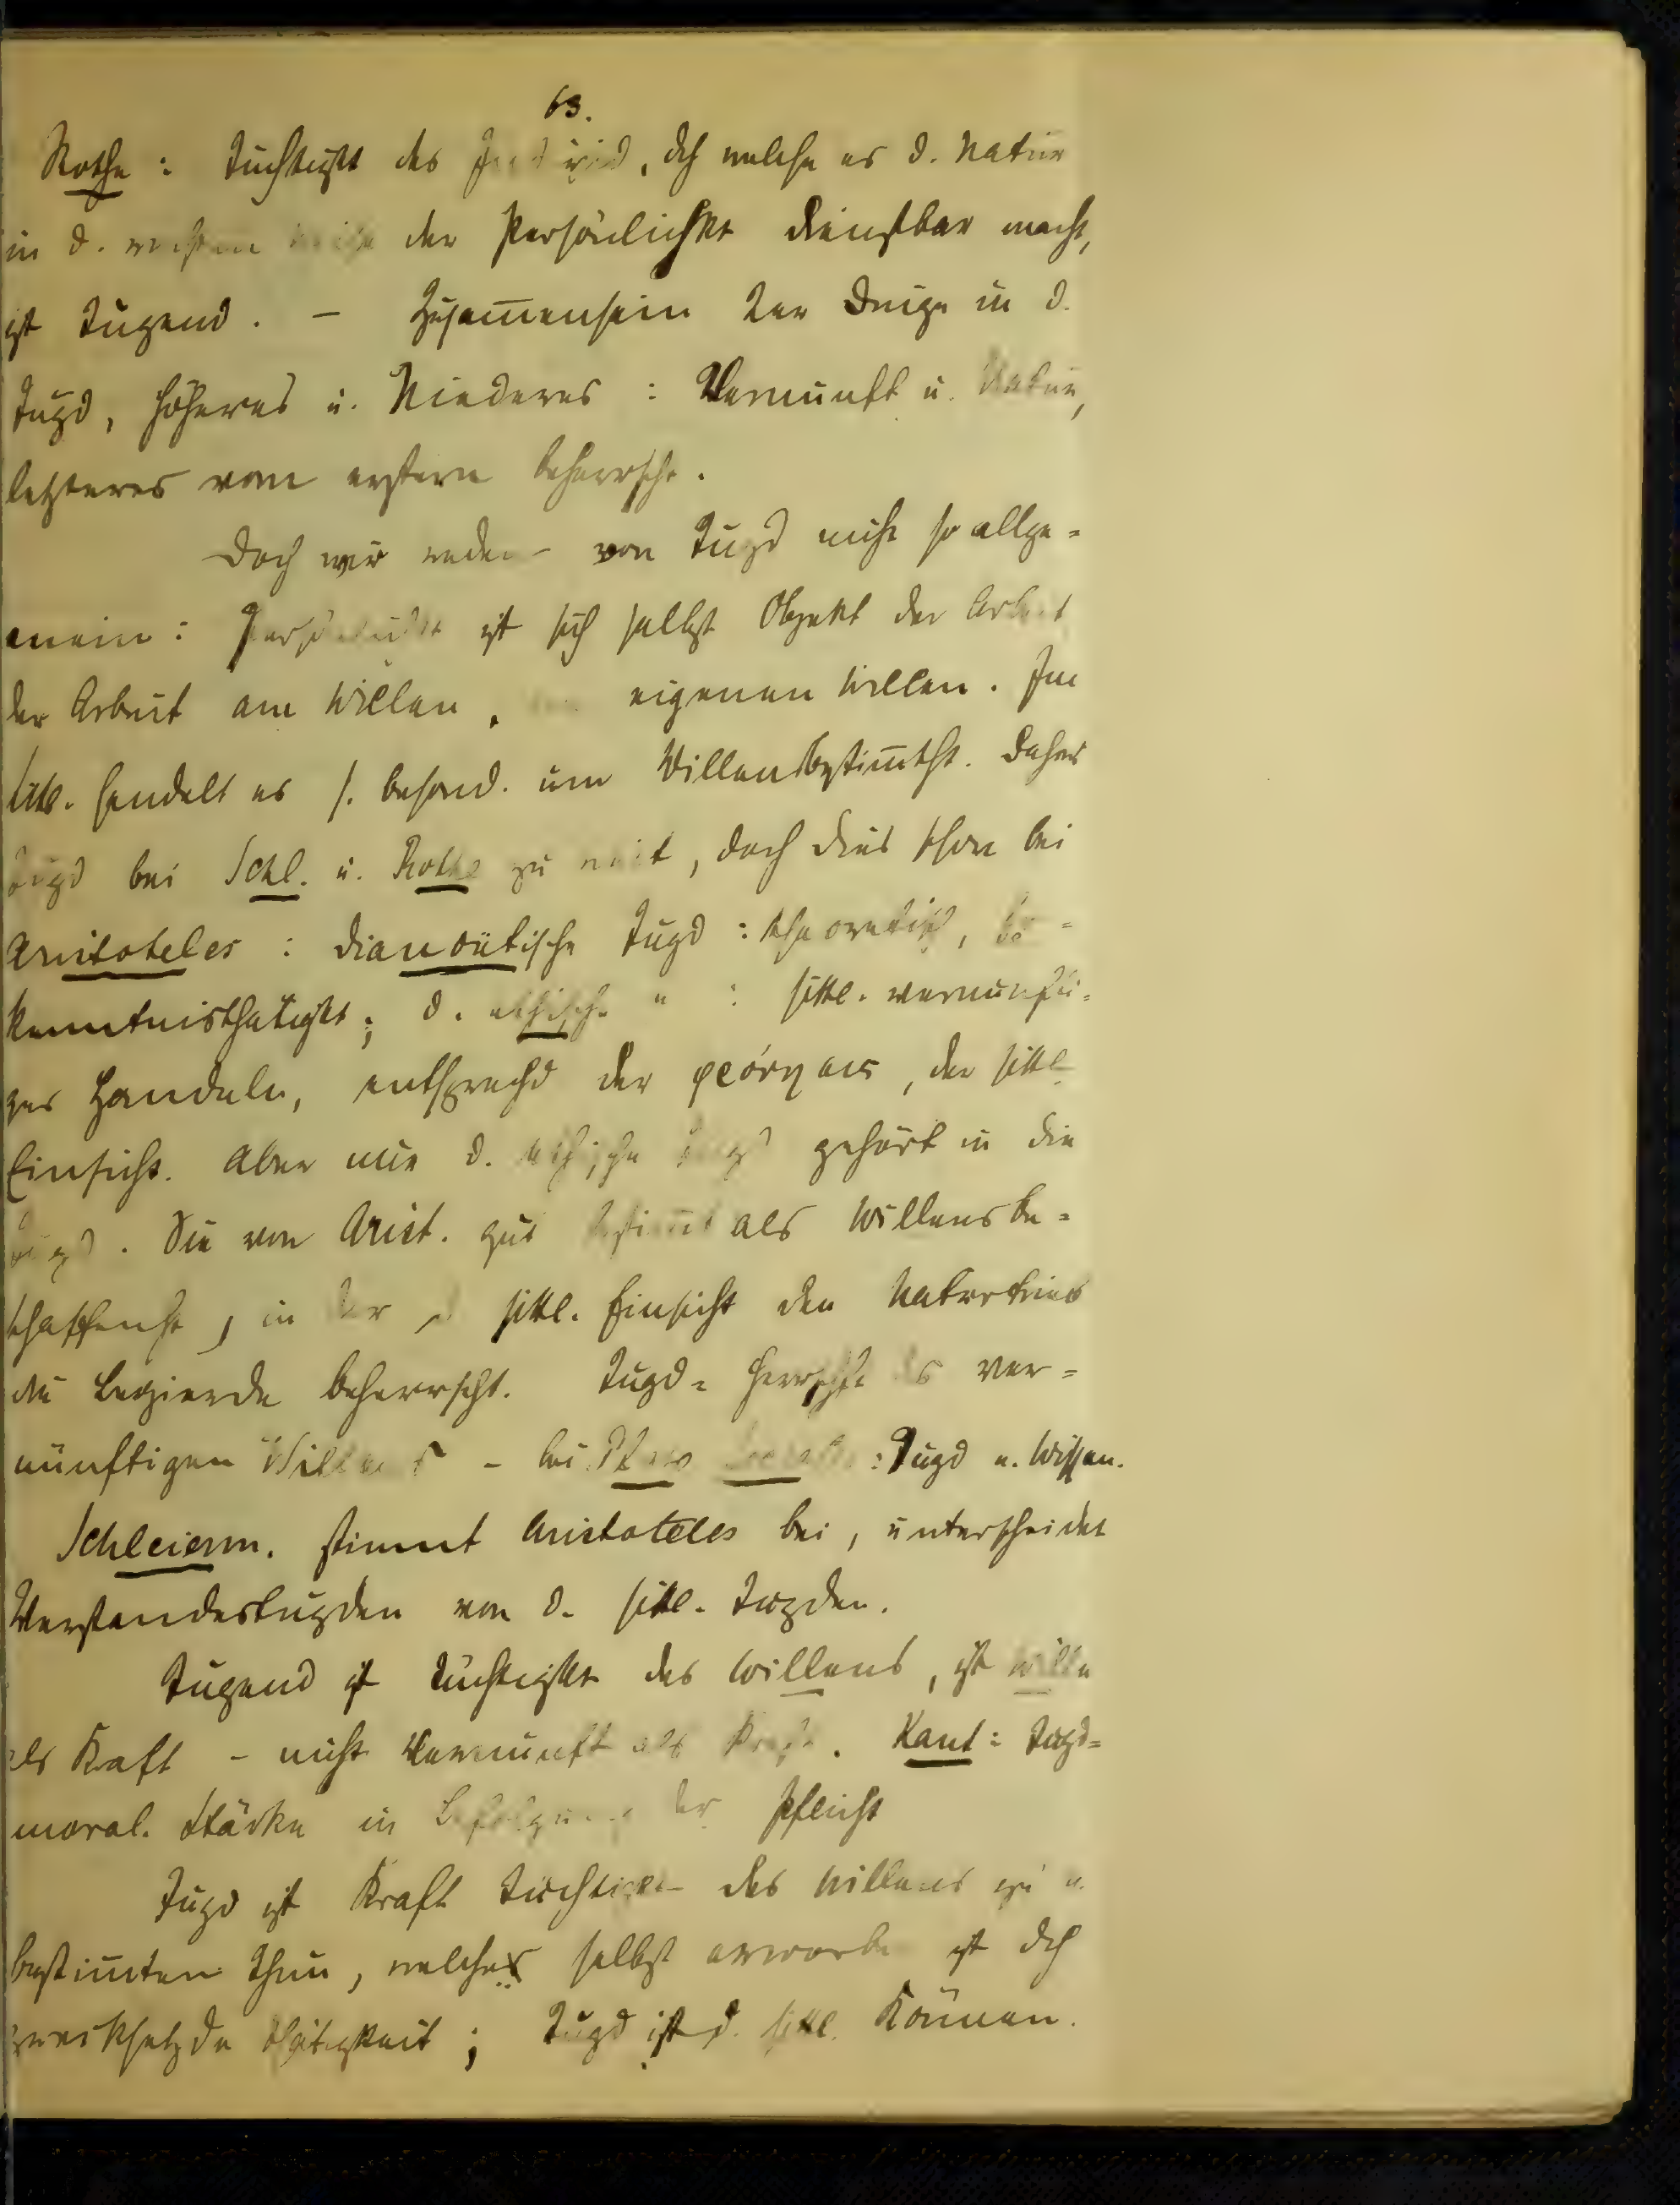 63.
Rothe : Tüchtigkt des Individ, dch welche es d. Natur
in d. rechten Weise der Persönlichkt dienstbar macht,
ist Tugend. – Zusam̅ensein der Dinge in d.
Tugd, Höheres u. Niederes : Vernunft u. Natur,
letzteres vom erstern beherrscht.
Doch wir reden von Tugd nicht so allge-
mein : Persönlichkt ist sich selbst Objekt der Arbeit
der Arbeit am Willen, eigenen Willen. Im
Sittl. handelt es s. besond. um Willensbestim̅tht. Daher
Tugd bei Schl. u. Rothe zu weit, doch dies schon bei
Aristoteles : dianoëtische Tugd : theoretisch, Er-
kenntnisthätigkt; d. ethische " : sittl. vernünfti-
ges Handeln, entsprechd der φρόνησις, der sittl.
Einsicht. Aber nur d. ethische Tugd gehört in die
Tugd. Die von Arist. gut bestim̅t als Willensbe-
schaffenht, in der d. sittl. Einsicht den Naturtrieb
die Begierde beherrscht. Tugd = Herrschft des ver-
nünftigen Willens – bei : Tugd u. Wissen.
Schleierm. stimmt Aristoteles bei, unterscheidet
Verstandestugden von d. sittl. Tugden.
Tugend ist Tüchtigkt des Willens, ist Wille
als Kraft – nicht Vernunft als Kraft. Kant : Tugd =
moral. Stärke in Befolgung der Pflicht
Tugd ist Kraft Tüchtigkt des Willens zu e.
bestim̅ten Thun, welches selbst erworben ist dch
zwecksetzde Thätigkeit ; Tugd ist d. sittl. Können.